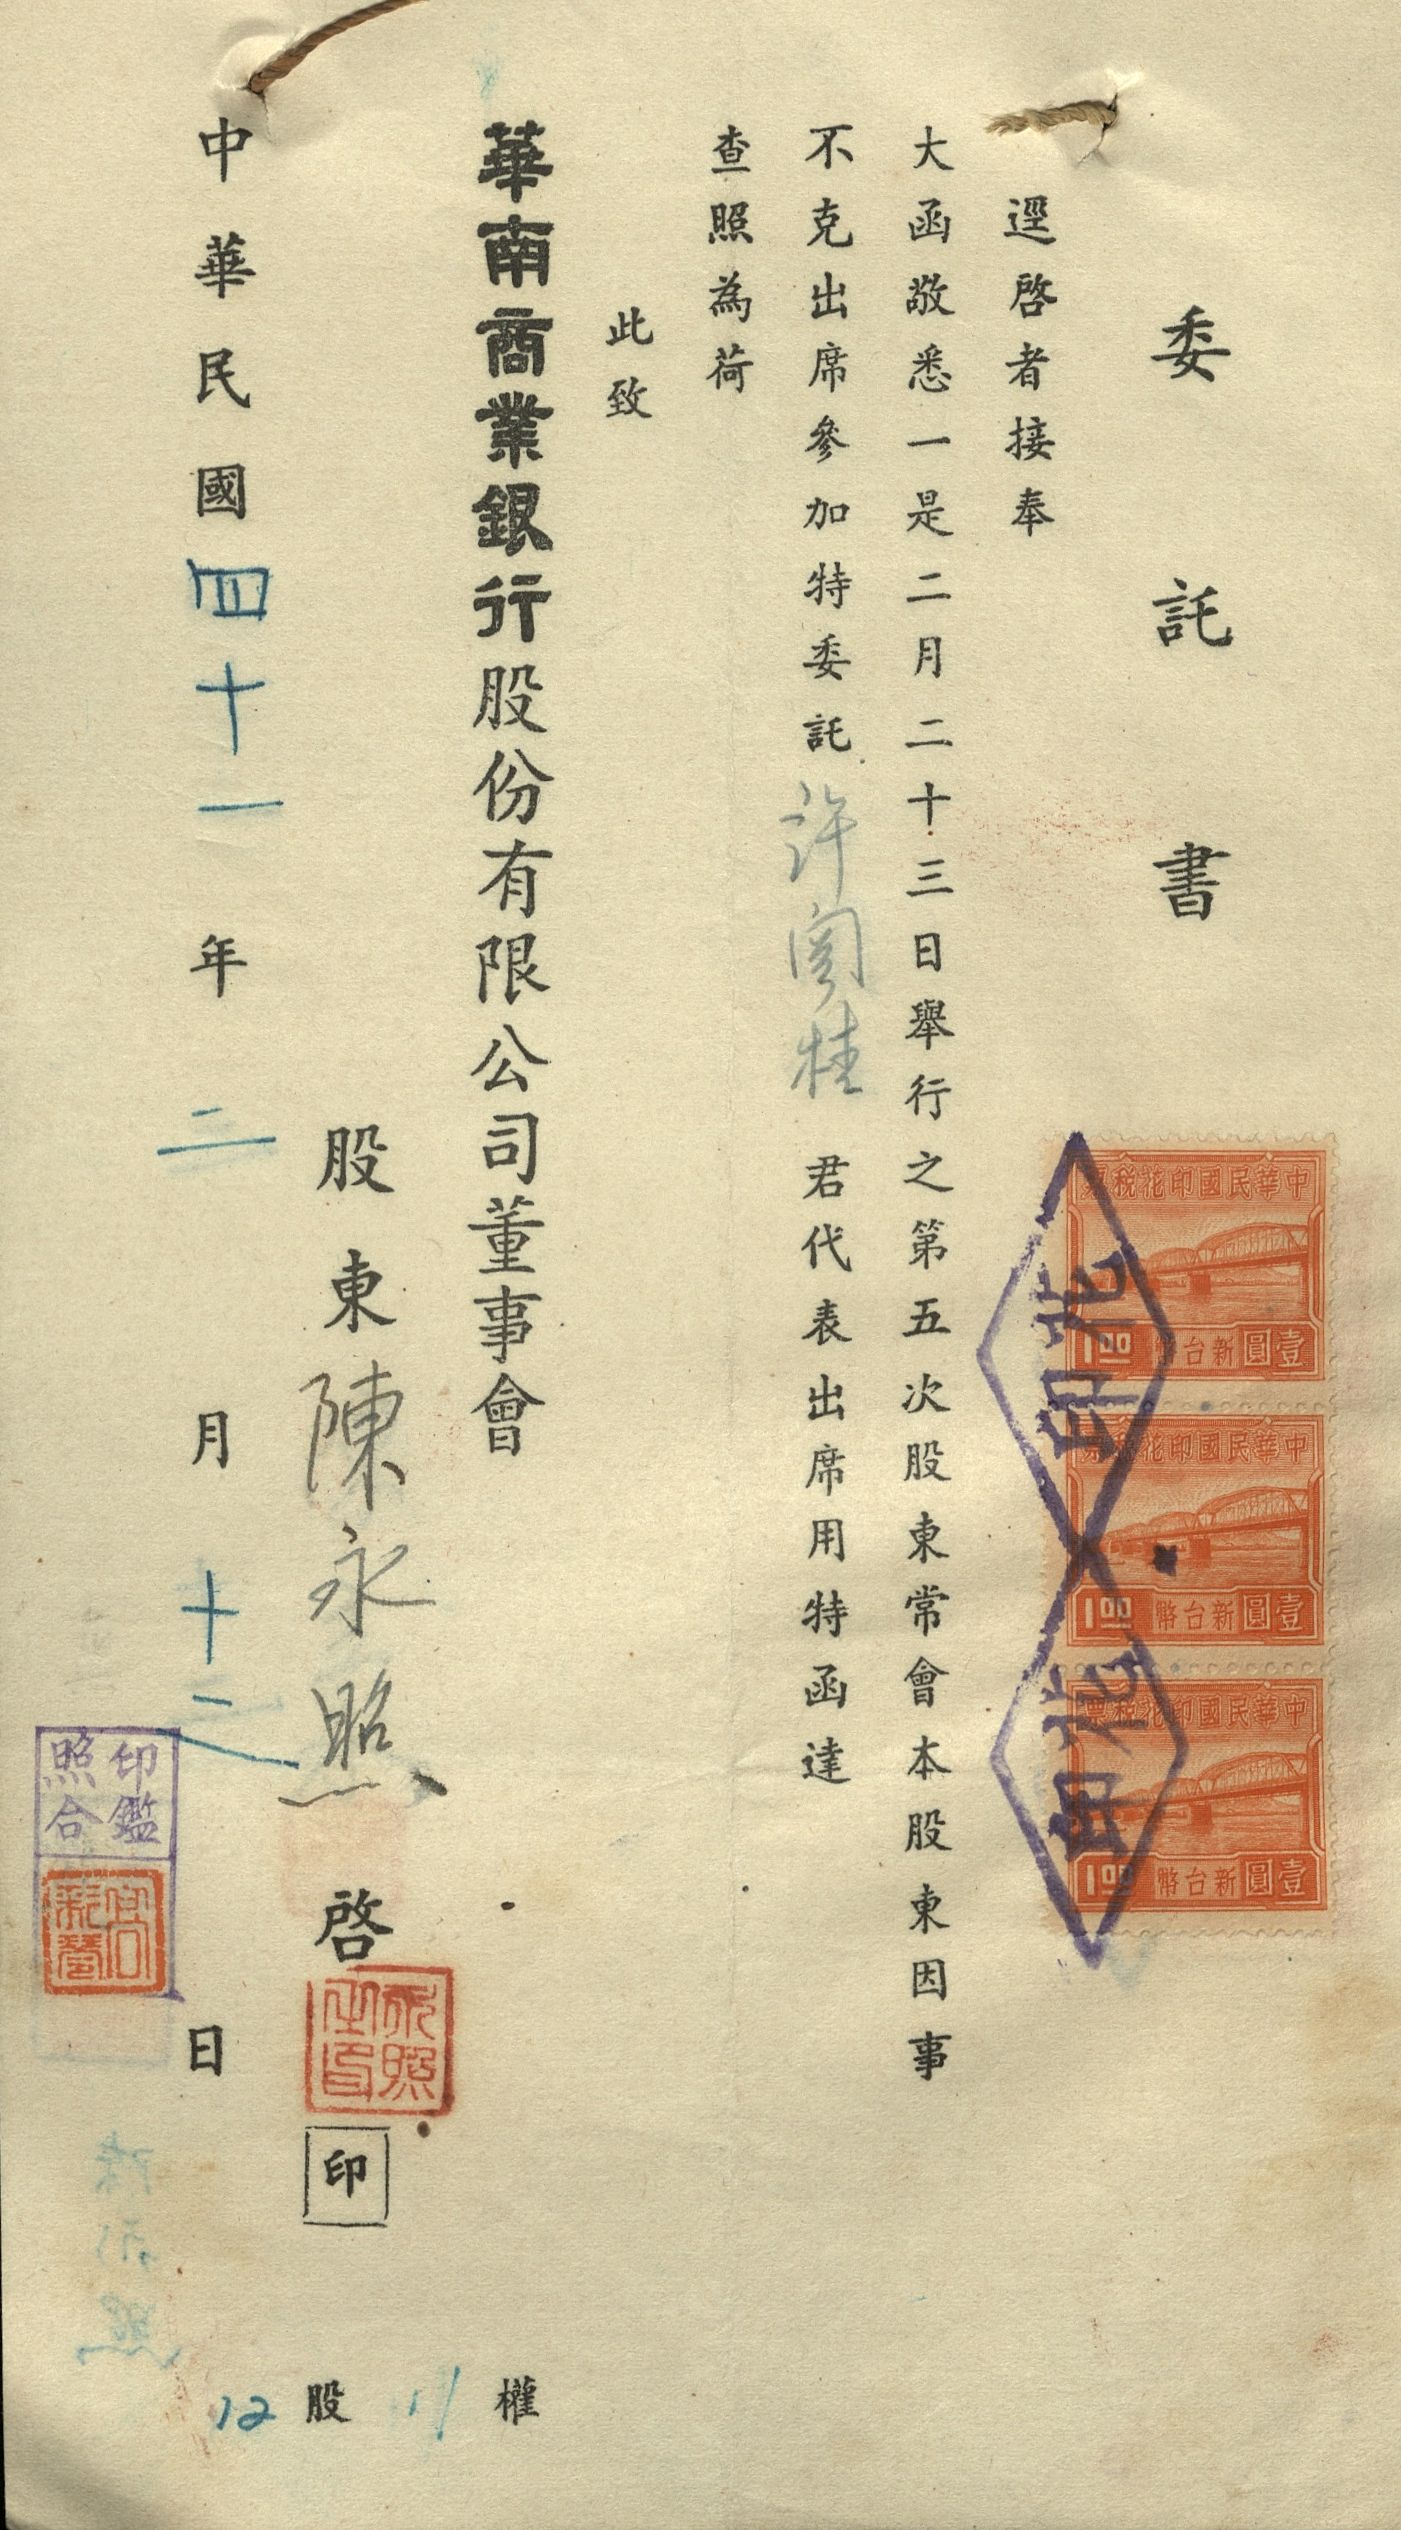 委託書
逕啓者接奉
大函敬悉一是二月二十三日舉行之第五次股東常會本股東因事
不克出席參加特委託許閣桂君代表出席用特函達
查照為荷
此致
華南商業銀行股份有限公司董事會
股東陳永照啓
印
中華民國四十一年二月十二日
權 11
股 12
中華民國印花稅票
壹圓 新台幣 1.00
中華民國印花稅票
壹圓 新台幣 1.00
中華民國印花稅票
壹圓 新台幣 1.00
永照
之印
印鑑
照合